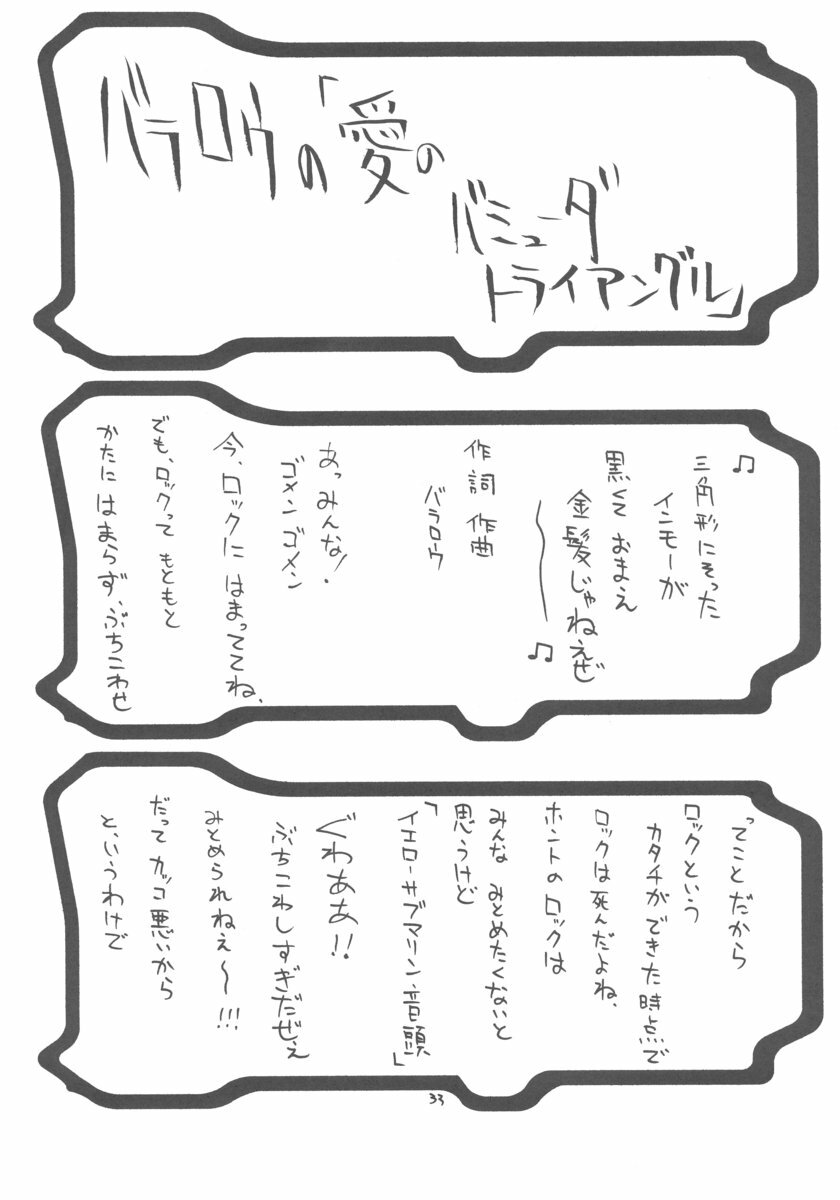 バラロウの「愛の
バミューダ
トライアングル」
♫
三角形にそった
インモーが
黒くて おまえ
金髪じゃねえぜ
♫
作詞 作曲
バラロウ
あっみんな!
ゴメンゴメン
今、ロックに はまっててね、
でも、ロックって もともと
かたに はまらず、ぶちこわせ
ってことだから
ロックという
カタチができた時点で
ロックは死んだよね、
ホントのロックは
みんな みとめたくないと
思うけど
「イエローサブマリン音頭」
ぐわああ!!
ぶちこわしすぎだぜぇ
みとめられねぇ〜!!!
だって カッコ悪いから
と、いうわけで
33